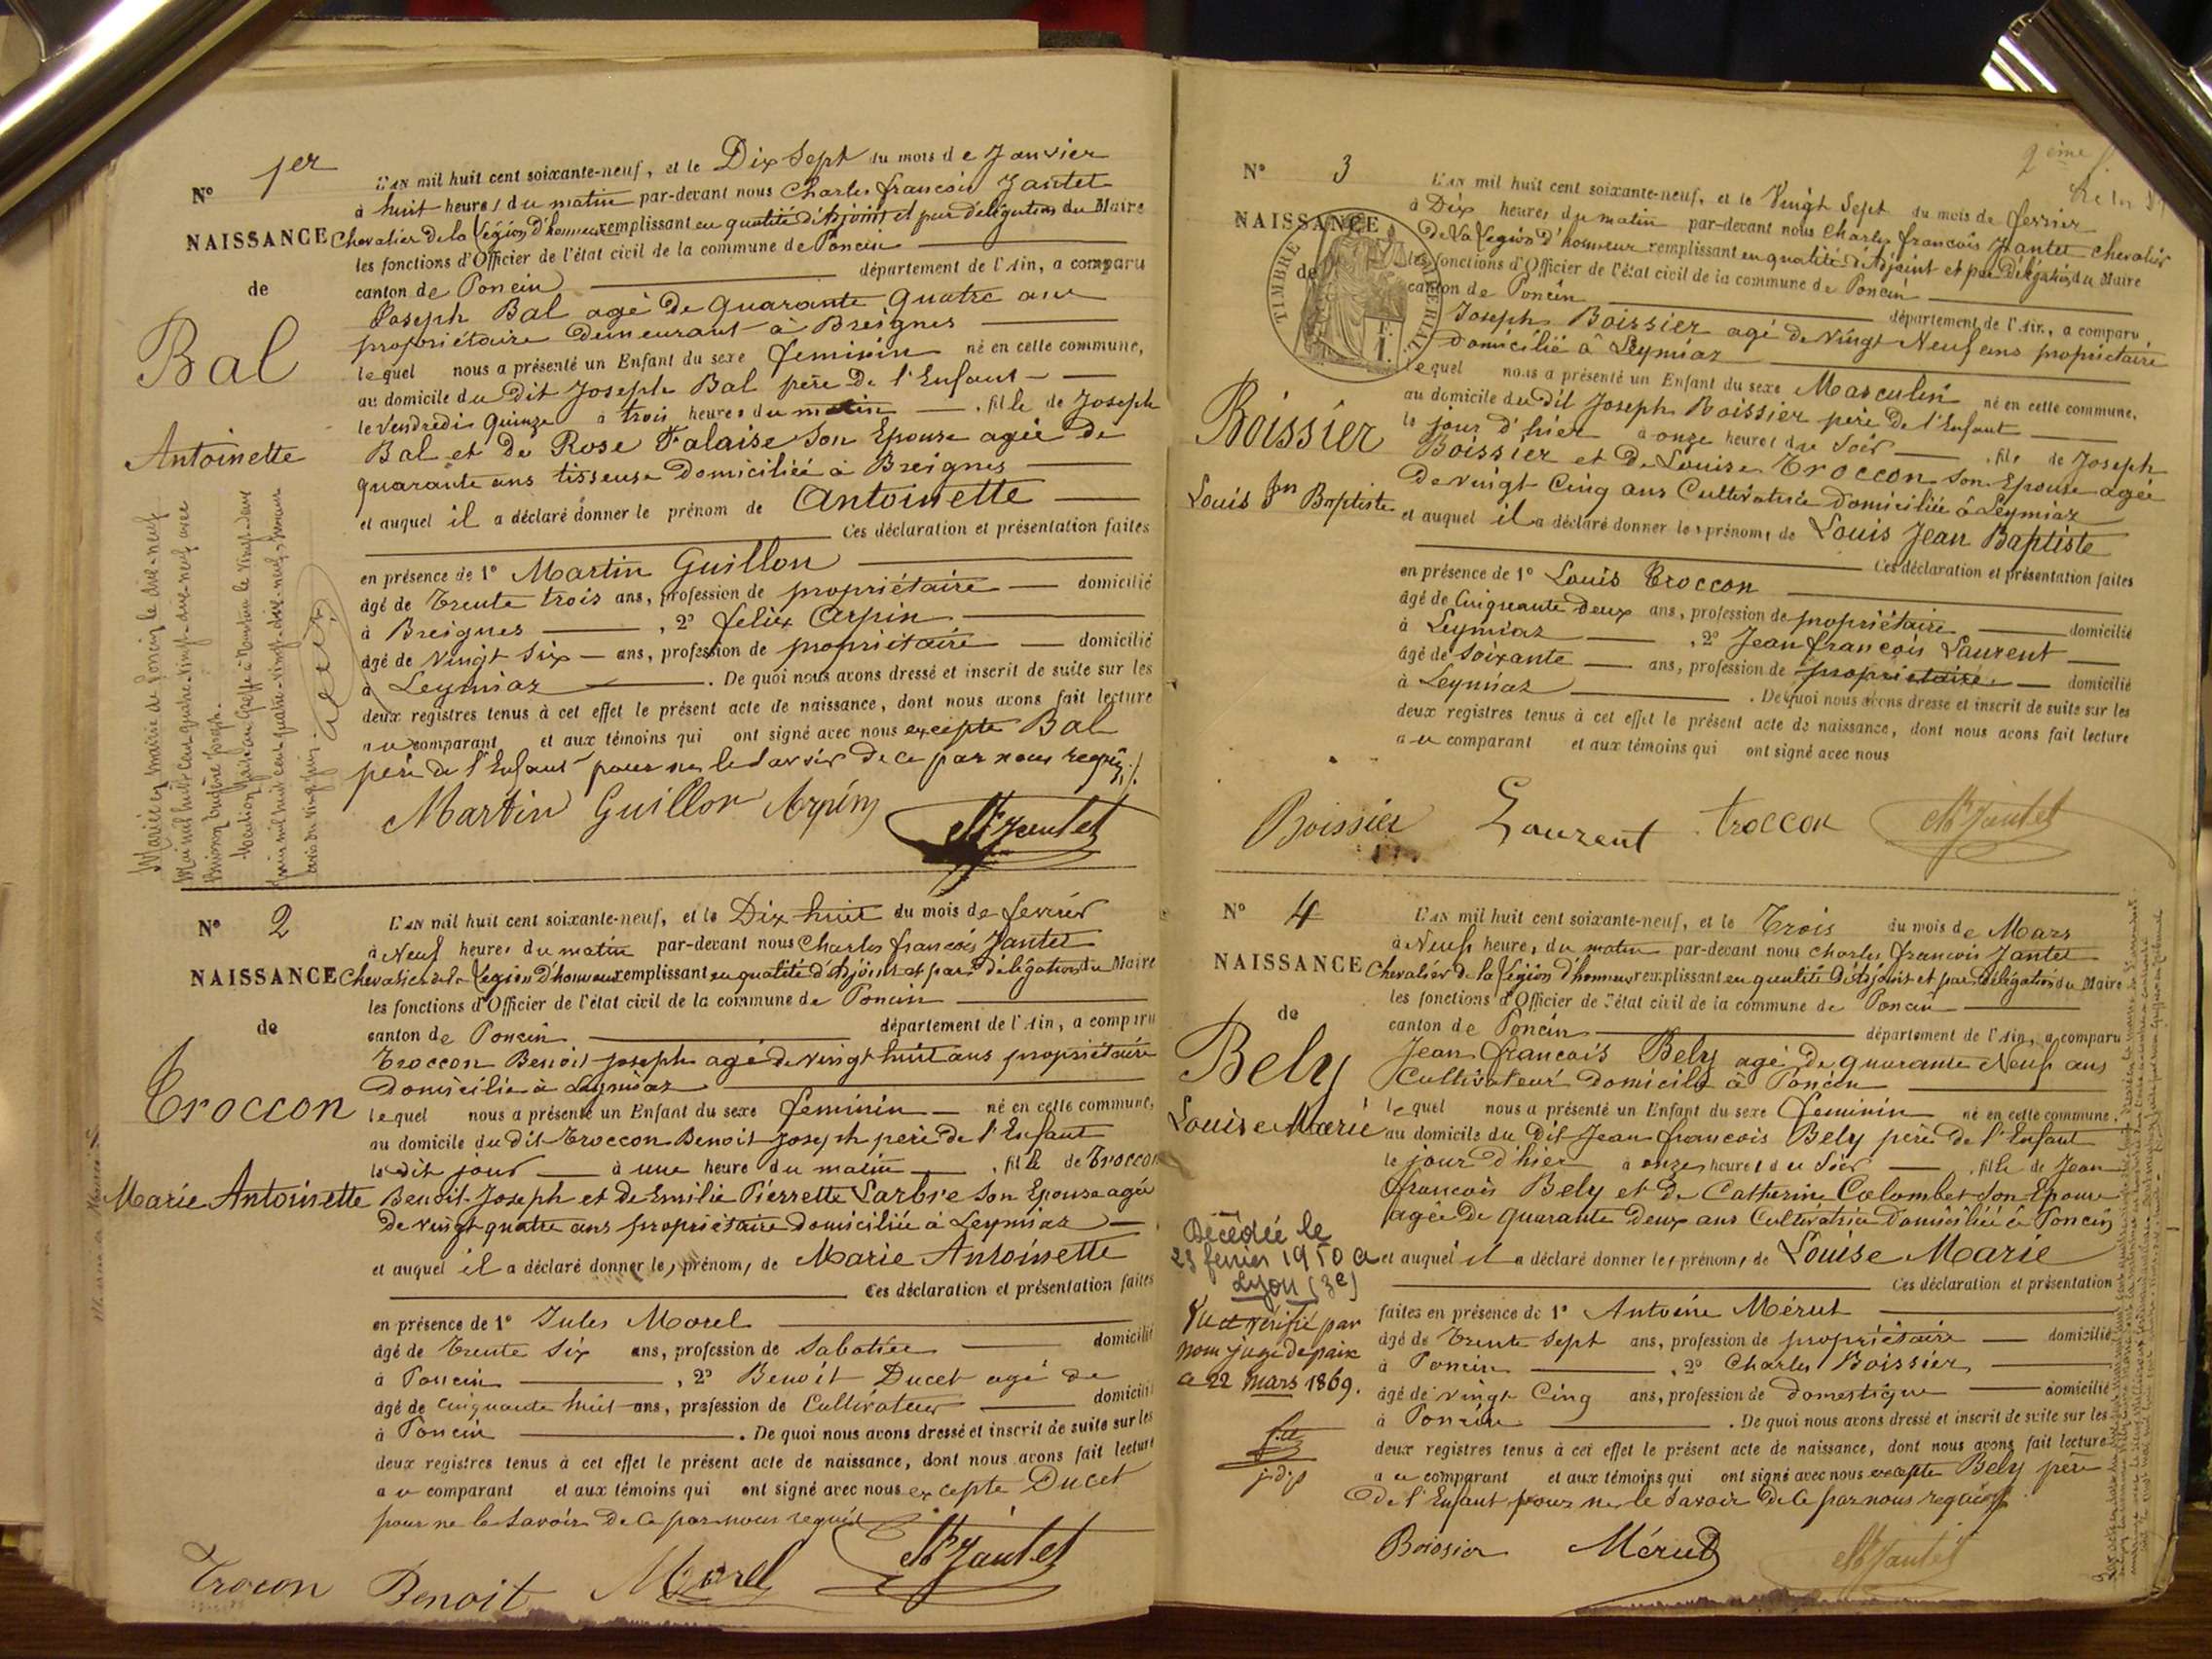 N° 1er
NAISSANCE
de
Bal
Antoinette
L'AN mil huit cent soixante-neuf, et le Dix Sept du mois de Janvier
à huit heures du matin par-devant nous Charles françois Jantet
Chevalier de la Légion d'honneur remplissant en qualité d'Adjoint et par délégation du Maire
les fonctions d'Officier de l'état civil de la commune de Poncin
canton de Poncin département de l'Ain, a comparu
Joseph Bal agé de quarante quatre ans
propriétaire demeurant à Breignes
lequel nous a présenté un Enfant du sexe feminin né en cette commune,
au domicile du dit Joseph Bal père de l'Enfant
le vendredi quinze à trois heures du matin , fille de Joseph
Bal et de Rose Falaise son Epouse agée de
quarante ans tisseuse Domiciliée à Breignes
et auquel il a déclaré donner le prénom de Antoinette
Ces déclaration et présentation faites
en présence de 1° Martin Guillon
âgé de trente trois ans, profession de propriétaire domicilié
à Breignes , 2° felix Arpin
âgé de vingt six ans, profession de propriétaire domicilié
à Leymiaz . De quoi nous avons dressé et inscrit de suite sur les
deux registres tenus à cet effet le présent acte de naissance, dont nous avons fait lecture
au comparant et aux témoins qui ont signé avec nous excepte Bal
père de l'Enfant pour ne le savoir de ce par nous requis ./.
Martin Guillon Arpin Ch Jantet
N° 2
NAISSANCE
de
Troccon
Marie Antoinette
L'AN mil huit cent soixante-neuf, et le Dix huit du mois de fevrier
à Neuf heures du matin par-devant nous Charles françois Jantet
Chevalier de la Legion D'honneur remplissant en qualité d'Adjoint et par délégation du Maire
les fonctions d'Officier de l'état civil de la commune de Poncin
canton de Poncin département de l'Ain, a comparu
Troccon Benoit joseph agé de vingt huit ans propriétaire
Domicilié à Leymiaz
lequel nous a présenté un Enfant du sexe feminin né en cette commune,
au domicile du dit Troccon Benoit Joseph père de l'Enfant
le dit jour à une heure du matin , fille de Troccon
Benoit Joseph et de Emilie Pierrette Larbre son Epouse agée
De vingt quatre ans propriétaire domiciliée à Leymiaz
et auquel il a déclaré donner les prénoms de Marie Antoinette
Ces déclaration et présentation faites
en présence de 1° Jules Morel
âgé de trente six ans, profession de Sabotier domicilié
à Poncin , 2° Benoit Ducet agé de
âgé de cinquante huit ans, profession de Cultivateur domicilié
à Poncin . De quoi nous avons dressé et inscrit de suite sur les
deux registres tenus à cet effet le présent acte de naissance, dont nous avons fait lecture
au comparant et aux témoins qui ont signé avec nous excepte Ducet
pour ne le savoir de ce par nous requis
Trocon Benoit Morel Ch Jantet
2ème
N° 3
NAISSANCE
de
TIMBRE IMPERIAL
Boissier
Louis Jn Baptiste
L'AN mil huit cent soixante-neuf, et le Vingt Sept du mois de fevrier
à Dix heures du matin par-devant nous Charles francois Jantet chevalier
De la Legion d'honneur remplissant en qualité d'Adjoint et par Délégation du Maire
les fonctions d'Officier de l'état civil de la commune de Poncin
canton de Poncin département de l'Ain, a comparu
Joseph Boissier agé de Vingt Neuf ans propriétaire
Domicilié à Leymiaz
lequel nous a présenté un Enfant du sexe Masculin né en cette commune,
au domicile du dit Joseph Boissier père de l'Enfant
le jour d'hier à onze heures du Soir , fils de Joseph
Boissier et De Louise Troccon son Epouse agée
De vingt Cinq ans Cultivatrice Domiciliée à Leymiaz
et auquel il a déclaré donner les prénoms de Louis Jean Baptiste
Ces déclaration et présentation faites
en présence de 1° Louis Troccon
âgé de Cinquante deux ans, profession de propriétaire domicilié
à Leymiaz , 2° Jean francois Laurent
âgé de soixante ans, profession de propriétaire domicilié
à Leymiaz . De quoi nous avons dressé et inscrit de suite sur les
deux registres tenus à cet effet le présent acte de naissance, dont nous avons fait lecture
au comparant et aux témoins qui ont signé avec nous
Boissier Laurent troccon Ch Jantet
N° 4
NAISSANCE
de
Bely
Louise Marie
Décédée le
23 fevrier 1950 a
Lyon (3e)
Vu et vérifié par
nous juge de paix
ce 22 mars 1869.
j.d.p
L'AN mil huit cent soixante-neuf, et le Trois du mois de Mars
à Neuf heures du matin par-devant nous charles francois Jantet
Chevalier de la Légion d'honneur remplissant en qualité D'Adjoint et par Délégation du Maire
les fonctions d'Officier de l'état civil de la commune de Poncin
canton de Poncin département de l'Ain, a comparu
Jean francois Bely agé de quarante Neuf ans
Cultivateur Domicilié à Poncin
lequel nous a présenté un Enfant du sexe feminin né en cette commune,
au domicile du Dit Jean francois Bely père de l'Enfant
le jour d'hier à onze heures du Soir , fille de Jean
francois Bely et de Catherine Colombet son Epouse
agée De quarante deux ans Cultivatrice Domiciliée à Poncin
et auquel il a déclaré donner les prénoms de Louise Marie
Ces déclaration et présentation
faites en présence de 1° Antoine Mérut
âgé de trente sept ans, profession de propriétaire domicilié
à Poncin , 2° Charles Boissier
âgé de vingt Cinq ans, profession de domestique domicilié
à Poncin . De quoi nous avons dressé et inscrit de suite sur les
deux registres tenus à cet effet le présent acte de naissance, dont nous avons fait lecture
au comparant et aux témoins qui ont signé avec nous excepte Bely père
de l'Enfant pour ne le savoir de ce par nous requis
Boissier Mérut Ch Jantet